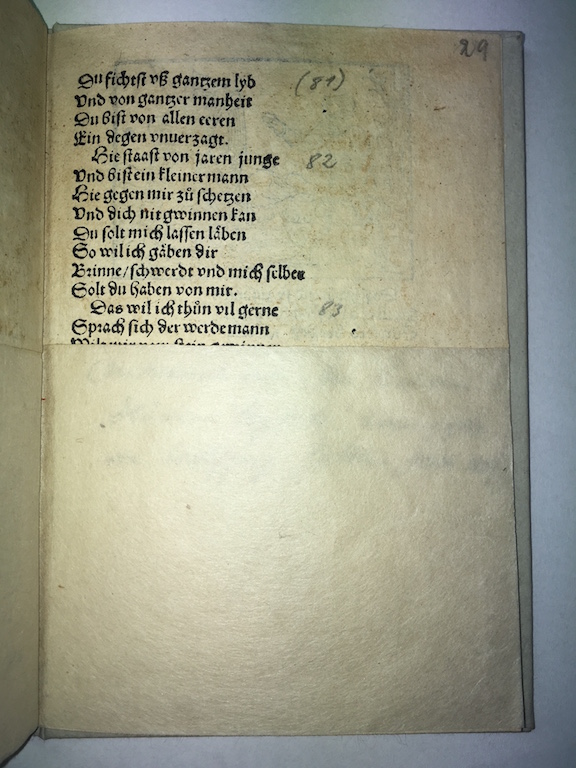 29
Du fichtst vß gantzem lyb (81)
Vnd von gantzer manheit
Du bist von allen eeren
Ein degen vnuerzagt.
Hie staast von jaren junge 82
Vnd bist ein kleiner mann
Hie gegen mir zů schetzen
Vnd dich nit gwinnen kan
Du solt mich lassen läben
So wil ich gäben dir
Brinne/schwerdt vnd mich selber
Solt du haben von mir.
Das wil ich thůn vil gerne 83
Sprach sich der werde mann